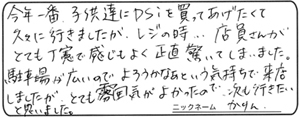 今年一番、子供達にDSiを買ってあげたくて
久々に行きましたが、レジの時‥、店員さんが
とても丁寧で感じもよく正直驚いてしまいました。
駐車場が広いのでよろうかなあという気持ちで来店
しましたが、とても雰囲気がよかったので、次も行きたい
と思いました。
ニックネーム かりん